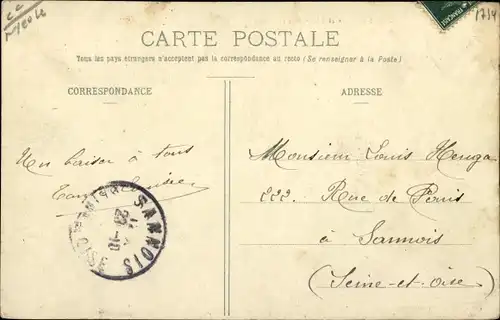 CARTE POSTALE
Tous les pays étrangers n'acceptent pas la correspondance au recto (Se renseigner à la Poste)
CORRESPONDANCE
ADRESSE
Un baiser à tous
Monsieur Louis
222. Rue de Paris
à Sannois
(Seine-et-Oise)
SANNOIS